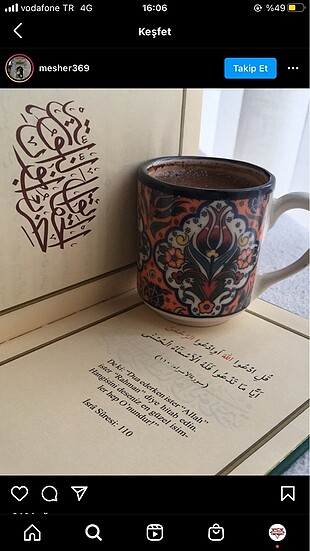 vodafone TR 4G
16:06
%49
Keşfet
mesher369
Takip Et
قُلِ ادْعُوا اللّٰهَ اَوِ ادْعُوا الرَّحْمٰنَ
اَيًّا مَا تَدْعُوا فَلَهُ الْاَسْمَٓاءُ الْحُسْنٰى
(سورة الاسراء ١١٠)
De ki: "Dua ederken ister "Allah"
ister "Rahman" diye hitab edin.
Hangisini deseniz en güzel isim-
ler hep O'nundur!"
İsrâ Sûresi: 110